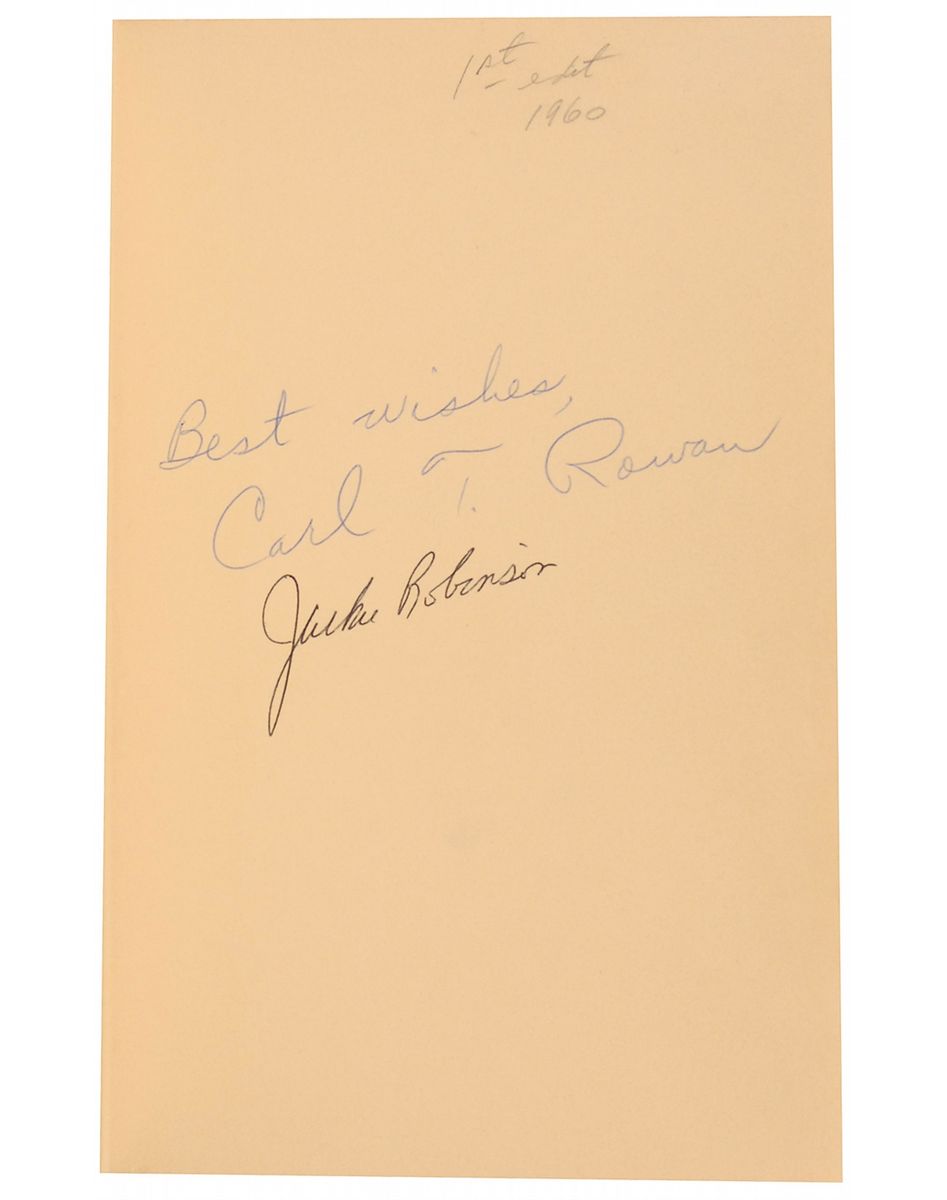 1st edit
1960
Best wishes,
Carl T. Rowan
Jackie Robinson